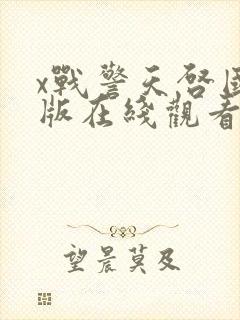 x戰警天啓國
版在綫觀看
望晨莫及